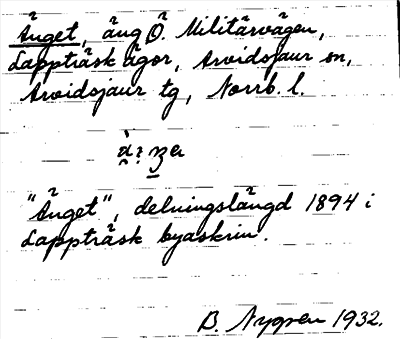 Änget, äng Ö. Militärvägen,
Lappträsk ägor, Arvidsjaur sn,
Arvidsjaur tg, Norrb. l.
"Änget", delningslängd 1894 i
Lappträsk byaskrin.
B. Nygren 1932.